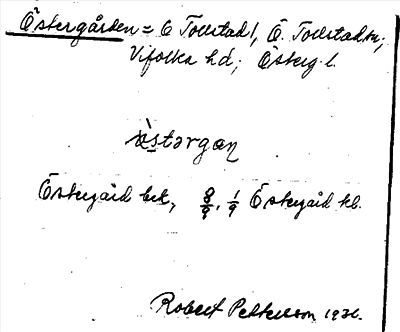 Östergården = Ö Tollstad 1, Ö. Tollstad sn;
Vifolka hd; Österg. l.
östərgan
Östergård bet, 8/9, 1/9 Östergård kl.
Robert Pettersson 1936.